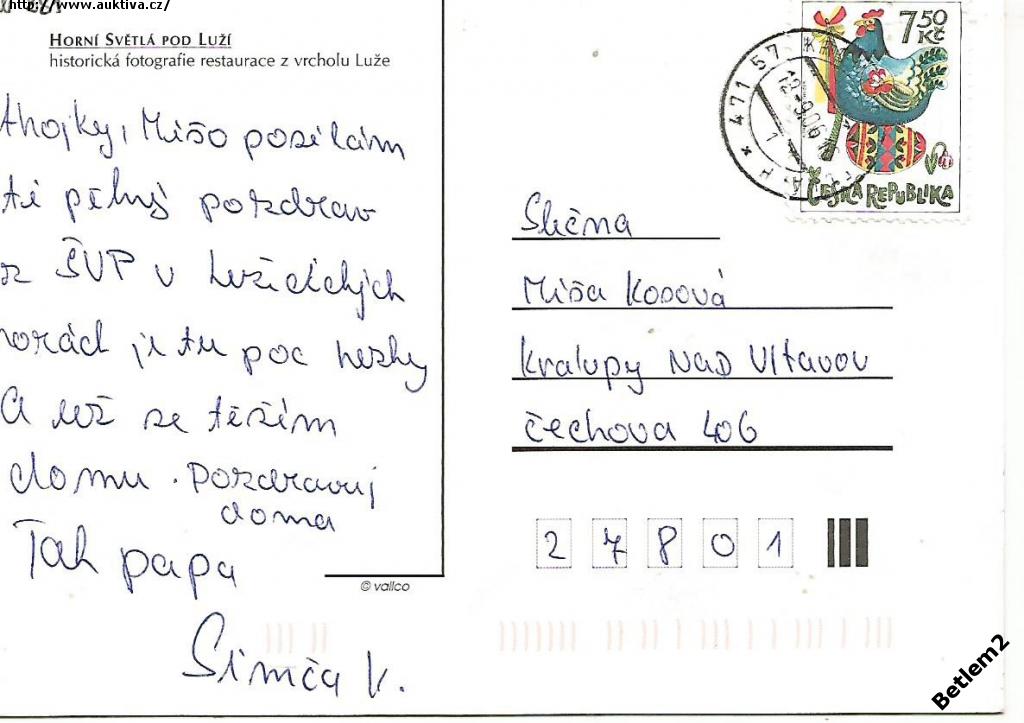 http://www.auktiva.cz/
HORNÍ SVĚTLÁ POD LUŽÍ
historická fotografie restaurace z vrcholu Luže
Ahojky, Mišo posílám
ti pěkný pozdrav
ze ŠVP v Lužických
horách je tu poc hezky
A už se těším
domu. Pozdravuj
doma
Tak papa
Simča K.
© vallco
7,50
Kč
ČESKÁ REPUBLIKA
* 471 57
Slečna
Míša Kosová
Kralupy NAD Vltavou
čechova 406
2 7 8 0 1
Betlem2